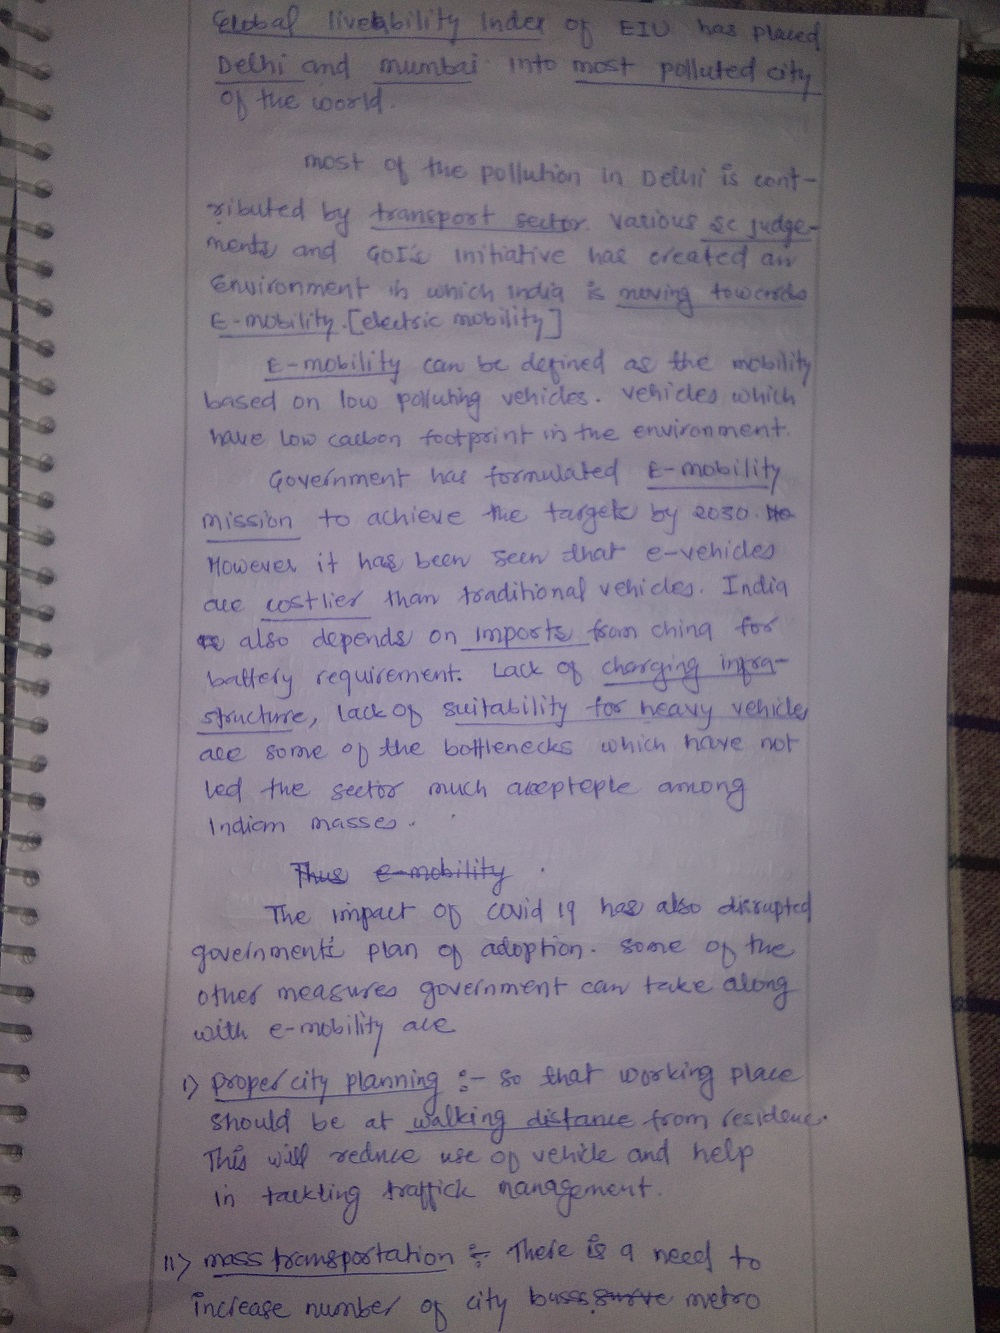 Global liveability Index of EIU has placed
Delhi and mumbai into most polluted city
of the world.
most of the pollution in Delhi is cont-
ributed by transport sector. various SC judge-
ments and GOI's initiative has created an
Environment in which India is moving towards
E-mobility.[electric mobility]
E-mobility can be defined as the mobility
based on low polluting vehicles. vehicles which
have low carbon footprint in the environment.
Government has formulated E-mobility
mission to achieve the targets by 2030. He
However it has been seen that e-vehicles
are costlier than traditional vehicles. India
also depends on imports from china for
battery requirement. Lack of charging infra-
structure, lack of suitability for heavy vehicles
are some of the bottlenecks which have not
led the sector much among
Indian masses.
Thus e-mobility
The impact of covid 19 has also disrupted
government's plan of adoption. some of the
other measures government can take along
with e-mobility are
i) proper city planning :- so that working place
should be at walking distance from residenc.
This will reduce use of vehicle and help
in tackling traffick management.
ii) mass transportation :- There is a need to
increase number of city metro